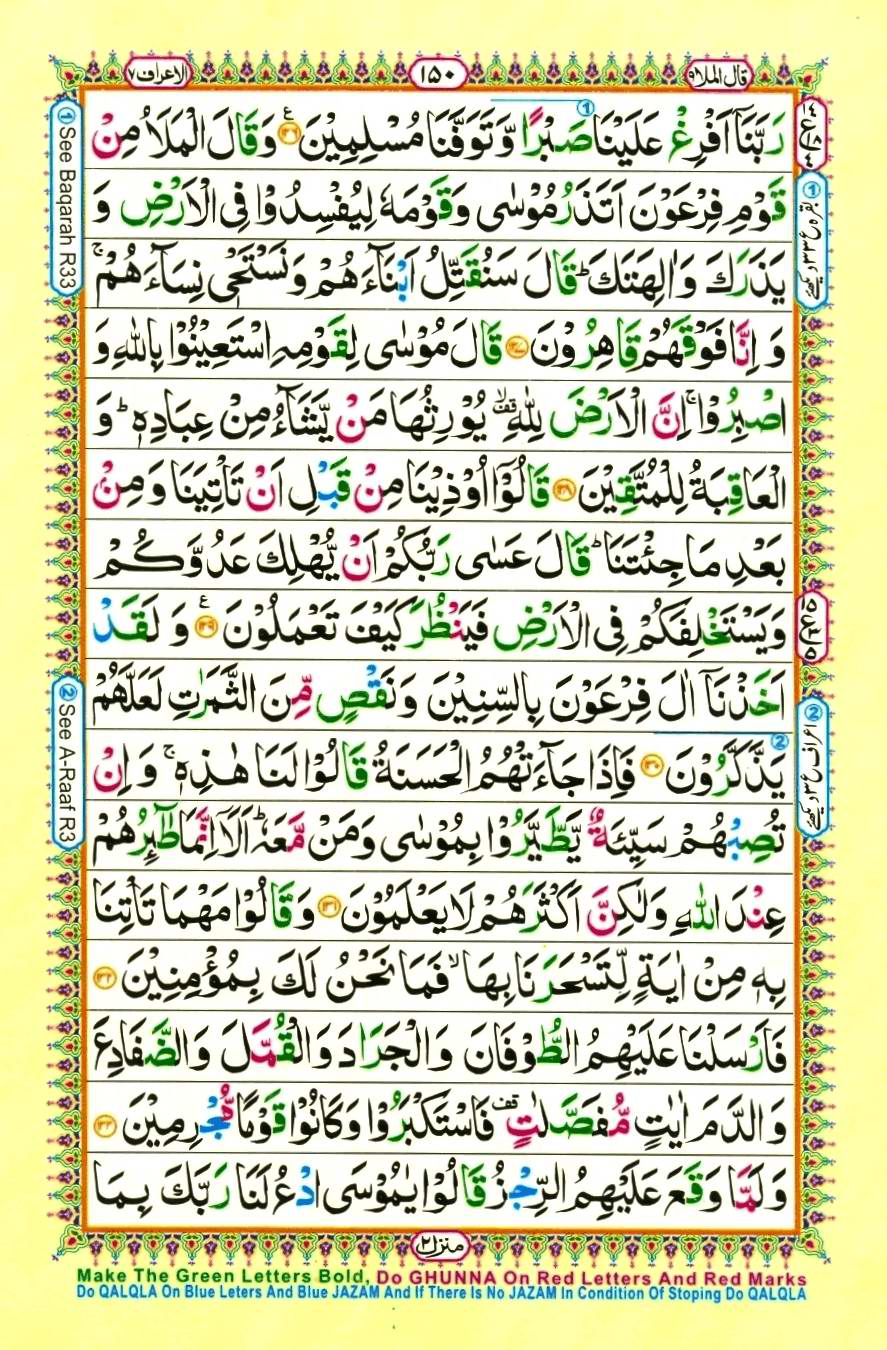 قال الملا ٩
١٥٠
الاعراف ٧
رَبَّنَآ اَفْرِغْ عَلَيْنَا صَبْرًا وَّتَوَفَّنَا مُسْلِمِيْنَ ﴿١٢٦﴾ وَقَالَ الْمَلَاُ مِنْ
قَوْمِ فِرْعَوْنَ اَتَذَرُ مُوْسٰى وَقَوْمَهٗ لِيُفْسِدُوْا فِى الْاَرْضِ وَ
يَذَرَكَ وَاٰلِهَتَكَ ؕ قَالَ سَنُقَتِّلُ اَبْنَآءَهُمْ وَنَسْتَحْىٖ نِسَآءَهُمْ ۚ
وَ اِنَّا فَوْقَهُمْ قَاهِرُوْنَ ﴿١٢٧﴾ قَالَ مُوْسٰى لِقَوْمِهِ اسْتَعِيْنُوْا بِاللّٰهِ وَ
اصْبِرُوْا ۚ اِنَّ الْاَرْضَ لِلّٰهِ ۙ يُوْرِثُهَا مَنْ يَّشَآءُ مِنْ عِبَادِهٖ ؕ وَ
الْعَاقِبَةُ لِلْمُتَّقِيْنَ ﴿١٢٨﴾ قَالُوْٓا اُوْذِيْنَا مِنْ قَبْلِ اَنْ تَاْتِيَنَا وَ مِنْ
بَعْدِ مَا جِئْتَنَا ؕ قَالَ عَسٰى رَبُّكُمْ اَنْ يُّهْلِكَ عَدُوَّكُمْ
وَيَسْتَخْلِفَكُمْ فِى الْاَرْضِ فَيَنْظُرَ كَيْفَ تَعْمَلُوْنَ ﴿١٢٩﴾ وَ لَقَدْ
اَخَذْنَآ اٰلَ فِرْعَوْنَ بِالسِّنِيْنَ وَنَقْصٍ مِّنَ الثَّمَرٰتِ لَعَلَّهُمْ
يَذَّكَّرُوْنَ ﴿١٣٠﴾ فَاِذَا جَآءَتْهُمُ الْحَسَنَةُ قَالُوْا لَنَا هٰذِهٖ ۚ وَ اِنْ
تُصِبْهُمْ سَيِّئَةٌ يَّطَّيَّرُوْا بِمُوْسٰى وَمَنْ مَّعَهٗ ؕ اَلَآ اِنَّمَا طٰٓئِرُهُمْ
عِنْدَ اللّٰهِ وَلٰكِنَّ اَكْثَرَهُمْ لَا يَعْلَمُوْنَ ﴿١٣١﴾ وَقَالُوْا مَهْمَا تَاْتِنَا
بِهٖ مِنْ اٰيَةٍ لِّتَسْحَرَنَا بِهَا ۙ فَمَا نَحْنُ لَكَ بِمُؤْمِنِيْنَ ﴿١٣٢﴾
فَاَرْسَلْنَا عَلَيْهِمُ الطُّوْفَانَ وَالْجَرَادَ وَالْقُمَّلَ وَالضَّفَادِعَ
وَالدَّمَ اٰيٰتٍ مُّفَصَّلٰتٍ ࣞ فَاسْتَكْبَرُوْا وَكَانُوْا قَوْمًا مُّجْرِمِيْنَ ﴿١٣٣﴾
وَلَمَّا وَقَعَ عَلَيْهِمُ الرِّجْزُ قَالُوْا يٰمُوْسَى ادْعُ لَنَا رَبَّكَ بِمَا
① See Baqarah R33
② See A-Raaf R3
منزل ٢
Make The Green Letters Bold, Do GHUNNA On Red Letters And Red Marks
Do QALQLA On Blue Leters And Blue JAZAM And If There Is No JAZAM In Condition Of Stoping Do QALQLA